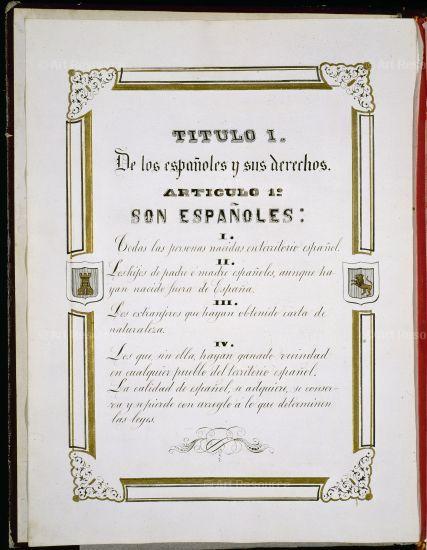 TITULO I.
De los españoles y sus derechos.
ARTICULO 1º
SON ESPAÑOLES:
I.
Todas las personas nacidas en territorio español.
II.
Los hijos de padre o madre españoles, aunque ha-
yan nacido fuera de España.
III.
Los extranjeros que hayan obtenido carta de
naturaleza.
IV.
Los que, sin ella, hayan ganado vecindad
en cualquier pueblo del territorio español.
La calidad de español, se adquiere, se conser-
va y se pierde con arreglo á lo que determinen
las leyes.